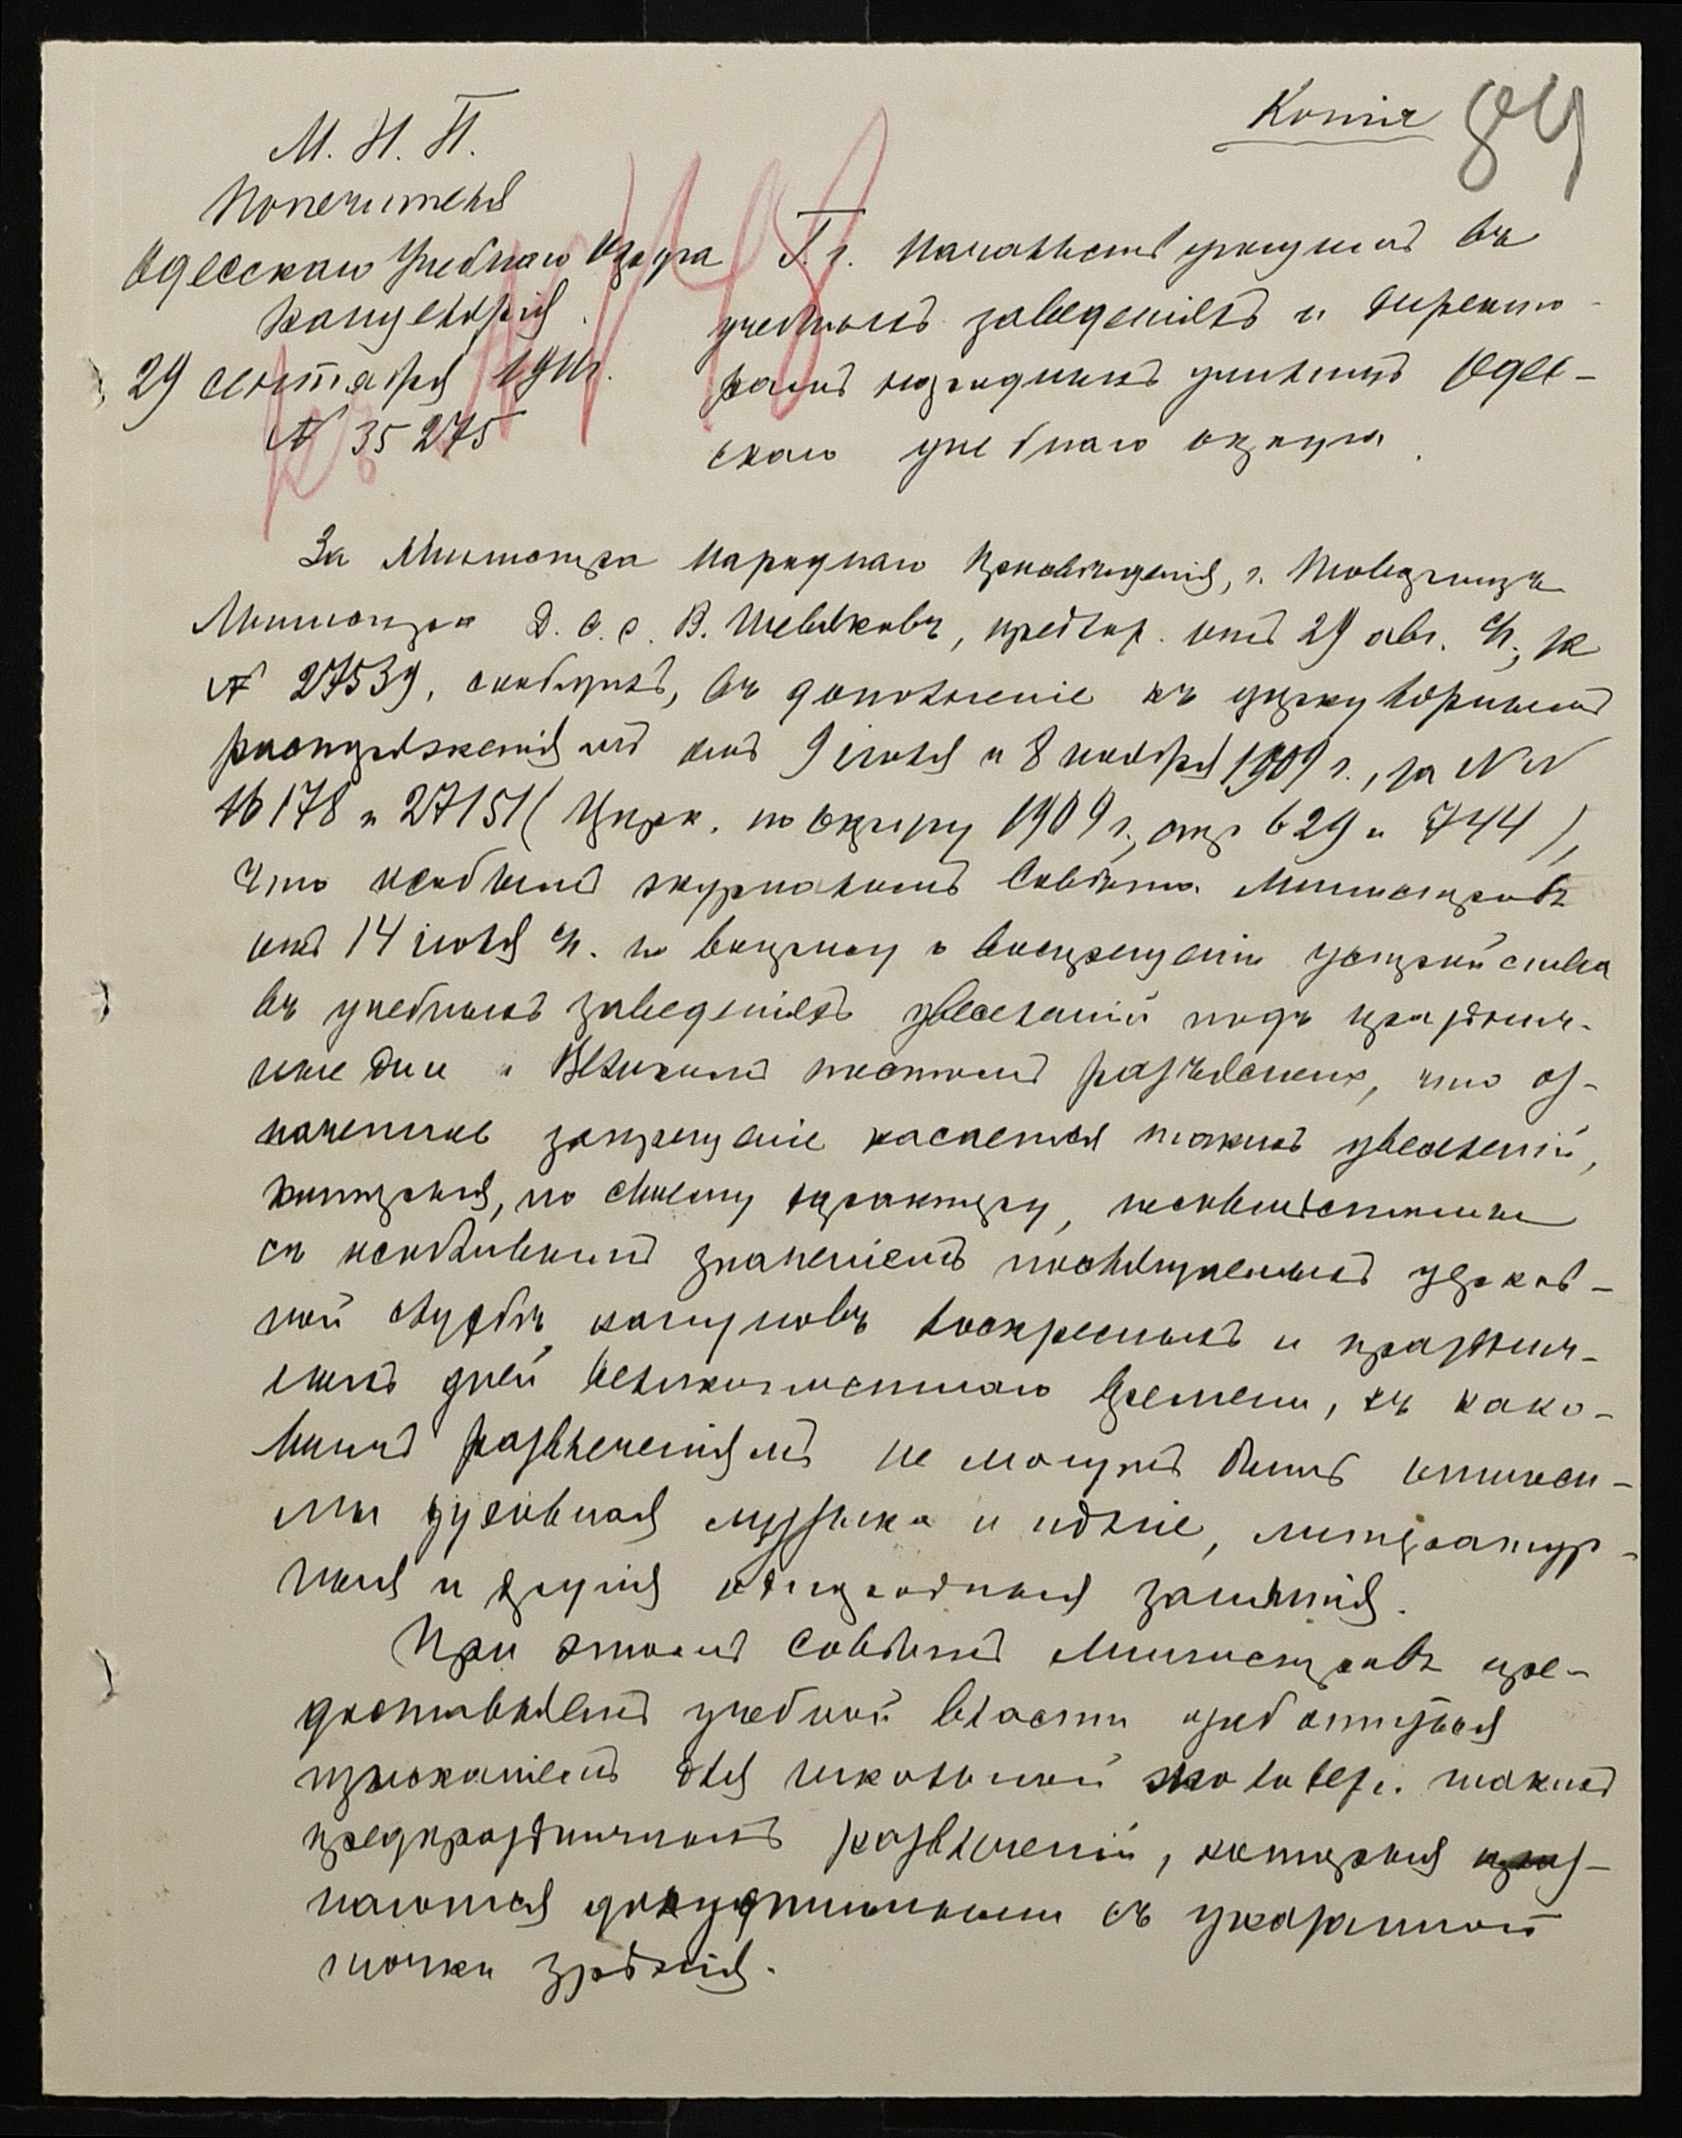 Копія
84
М. Н. П.
Попечителя
Одесскаго Учебнаго Округа
Канцелярія
29 сентября 1911г.
№ 35275
Г.г. Начальствующимъ въ
учебныхъ заведеніяхъ и Директо-
рамъ народныхъ училищъ Одес-
скаго учебнаго округа.
За Министра Народнаго Просвѣщенія, г. Товарищъ
Министра Д. С. С. В. Шевяковъ, предлож. отъ 29 авг. с/г. за
№ 27539, сообщилъ, въ дополненіе къ циркулярнымъ
распоряженіямъ отъ 9 іюля и 8 ноября 1909 г., за №№
16178 и 27151 (Цирк. по округу 1909 г., стр 629 и 744),
что особымъ журналомъ Совѣта Министровъ
отъ 14 іюля с/г. по вопросу о воспрещеніи устройства
въ учебныхъ заведеніяхъ увеселеній подъ празднич-
ные дни и Великимъ постомъ разъяснено, что оз-
наченное запрещеніе касается такихъ увеселеній,
которыя, по своему характеру, несовмѣстимы
съ особливымъ значеніемъ посвящаемыхъ церков-
ной службѣ кануновъ воскресныхъ и празднич-
ныхъ дней и великопостнаго времени, къ како-
вымъ развлеченіямъ не могутъ быть относи-
мы духовная музыка и пѣніе, литератур-
ныя и другія облагородныя занятія.
При этомъ Совѣтъ Министровъ пре-
доставляетъ учебной власти озаботиться
пріисканіемъ для школьной молодежи такихъ
предпраздничныхъ развлеченій, которыя приз-
наются допустимыми съ указанной
точки зрѣнія.